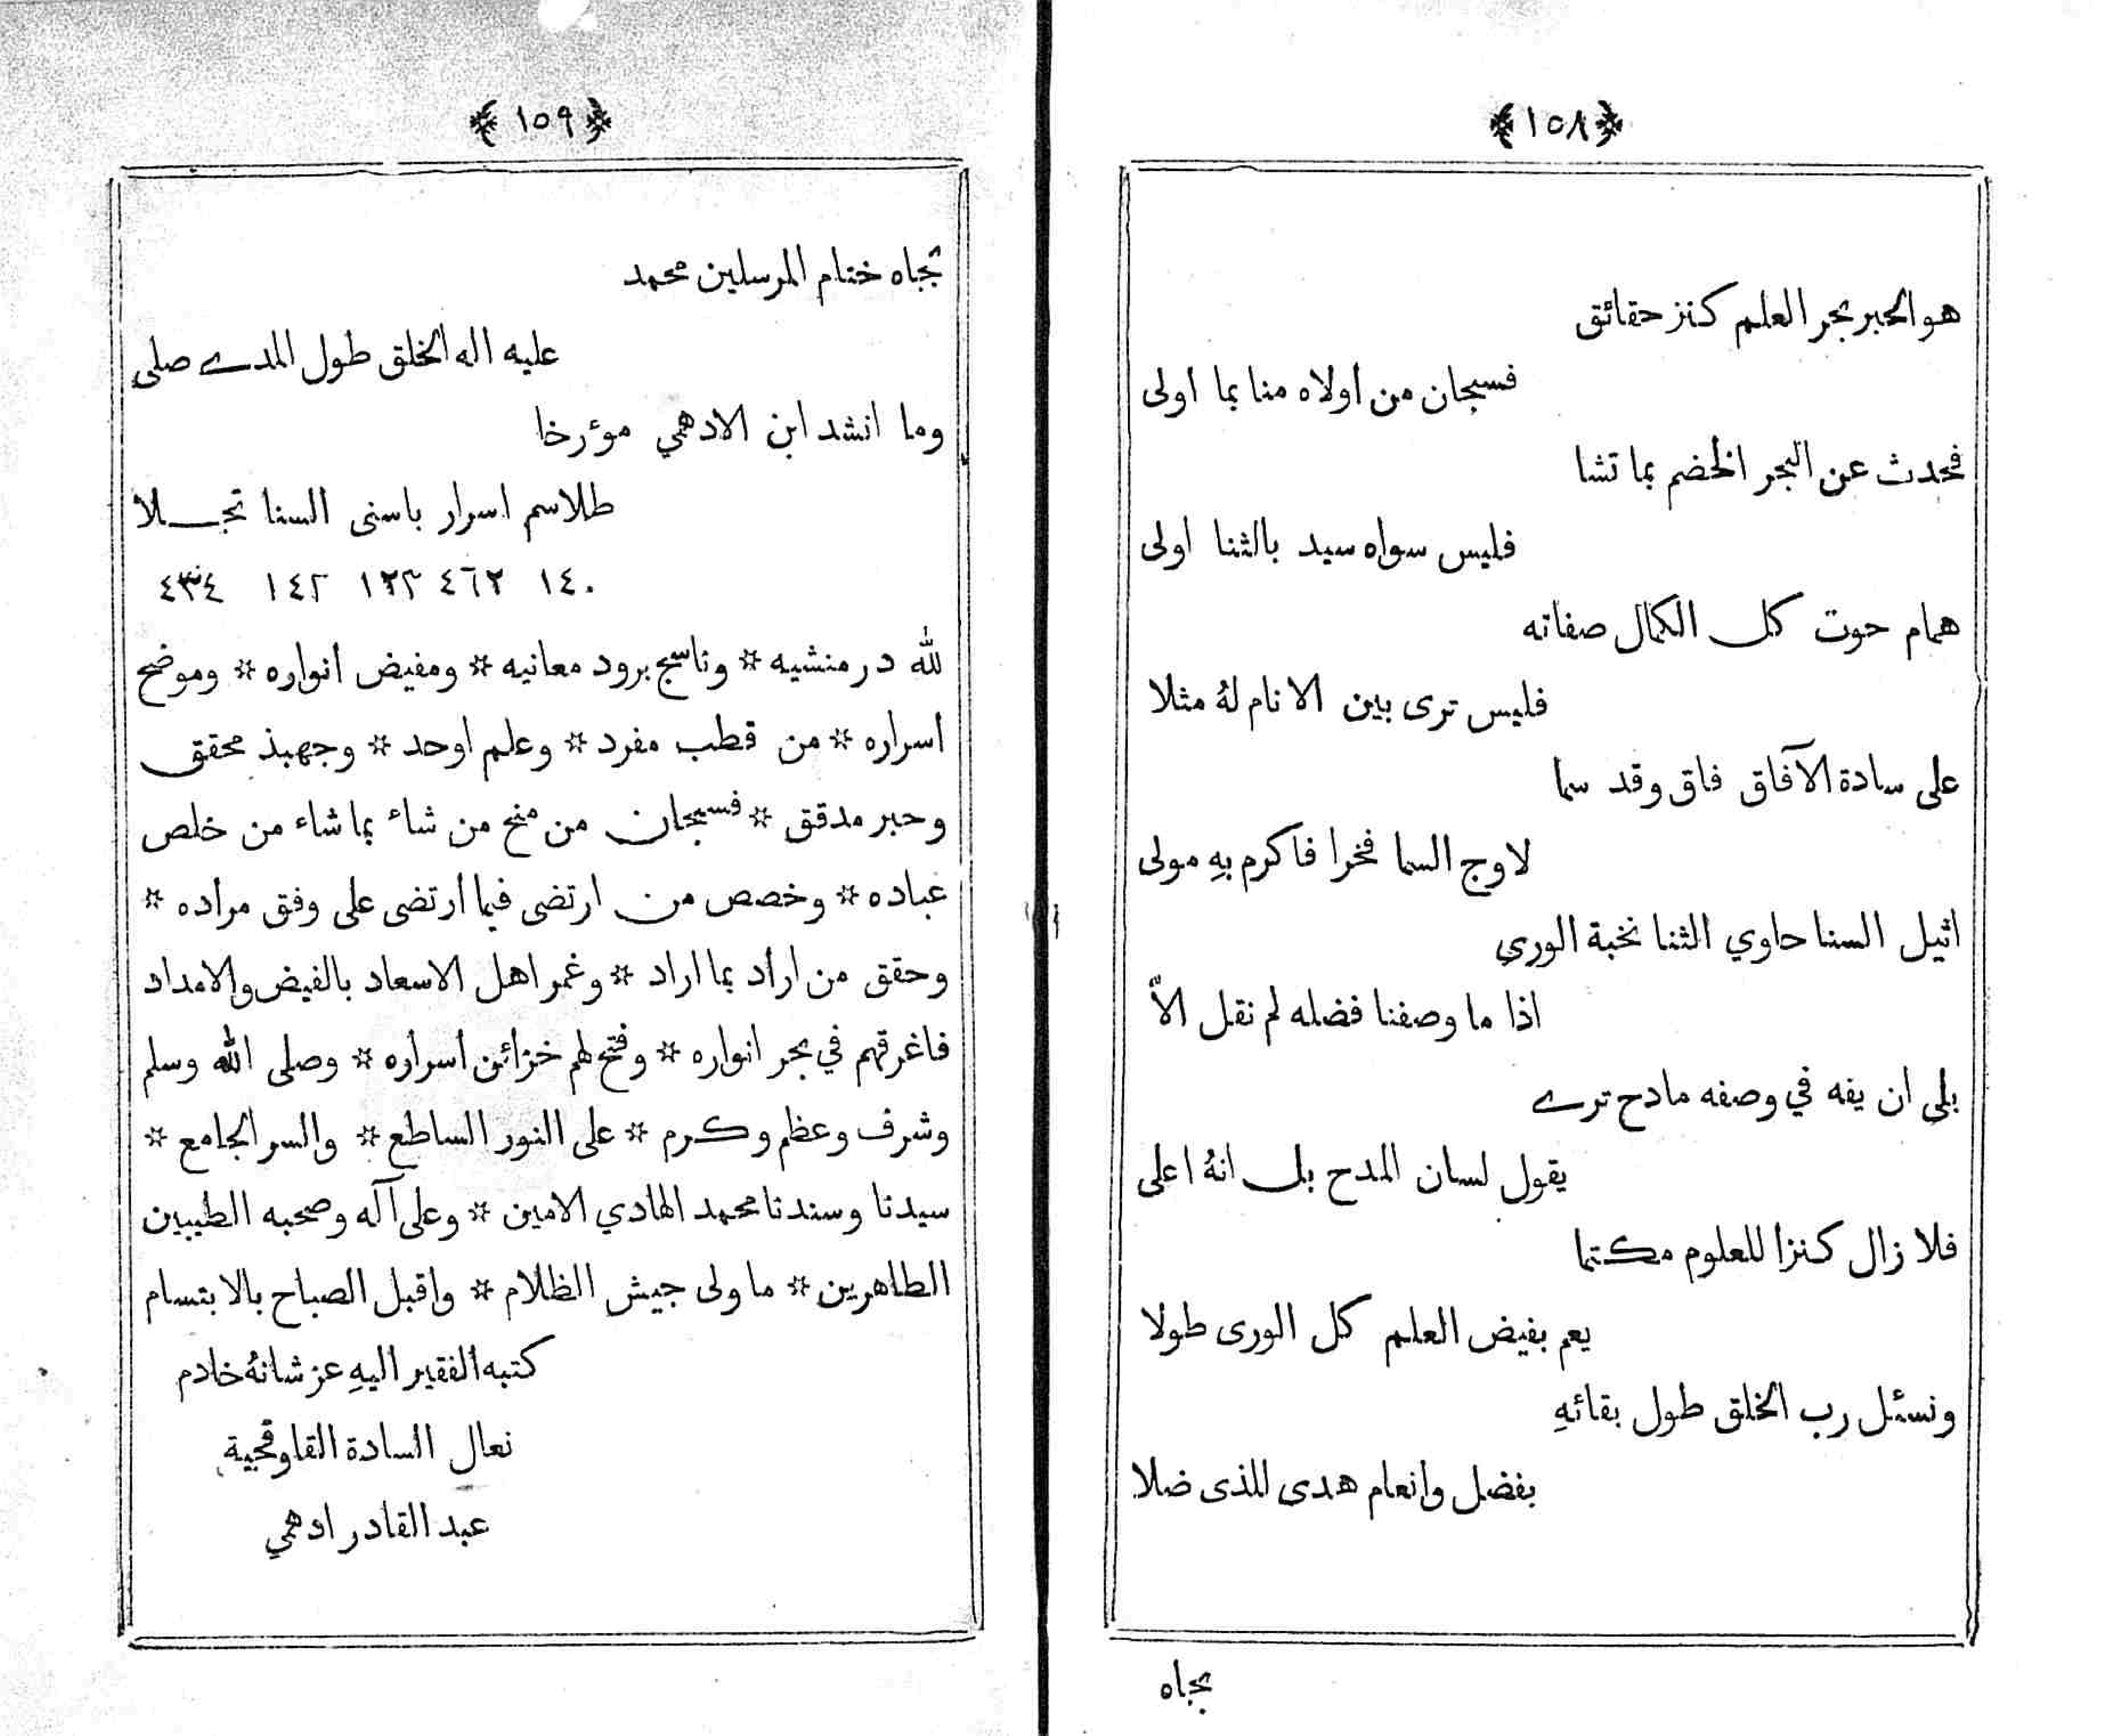 ﴿١٥٨﴾
هو الحبر بحر العلم كنز حقائق
فسبحان من اولاه منا بما اولى
فحدث عن البحر الخضم بما تشا
فليس سواه سيد بالثنا اولى
همام حوت كل الكمال صفاته
فليس ترى بين الانام لهُ مثلا
على سادة الآفاق فاق وقد سما
لاوج السما فخرا فاكرم بهِ مولى
اثيل السنا حاوي الثنا نخبة الورى
اذا ما وصفنا فضله لم نقل الاّ
بلى ان يفه في وصفه مادح ترى
يقول لسان المدح بل انهُ اعلى
فلا زال كنزا للعلوم مكتما
يعم بفيض العلم كل الورى طولا
ونسئل رب الخلق طول بقائهِ
بفضل وانعام هدى للذى ضلا
بجاه
﴿١٥٩﴾
بجاه ختام المرسلين محمد
عليه اله الخلق طول المدى صلى
وما انشد ابن الادهمي مؤرخا
طلاسم اسرار باسنى السنا تجلا
١٤٠ ٤٦٢ ١٢٣ ١٤٢ ٤٣٤
لله در منشيه * وناسج برود معانيه * ومفيض انواره * وموضح
اسراره * من قطب مفرد * وعلم اوحد * وجهبذ محقق
وحبر مدقق * فسبحان من منح من شاء بما شاء من خلص
عباده * وخصص من ارتضى فيما ارتضى على وفق مراده *
وحقق من اراد بما اراد * وغمر اهل الاسعاد بالفيض والامداد
فاغرقهم في بحر انواره * وفتح لهم خزائن اسراره * وصلى الله وسلم
وشرف وعظم وكرم * على النور الساطع * والسر الجامع *
سيدنا وسندنا محمد الهادي الامين * وعلى آله وصحبه الطيبين
الطاهرين * ما ولى جيش الظلام * واقبل الصباح بالابتسام
كتبه الفقير اليهِ عز شانهُ خادم
نعال السادة القاوقجية
عبد القادر ادهمي